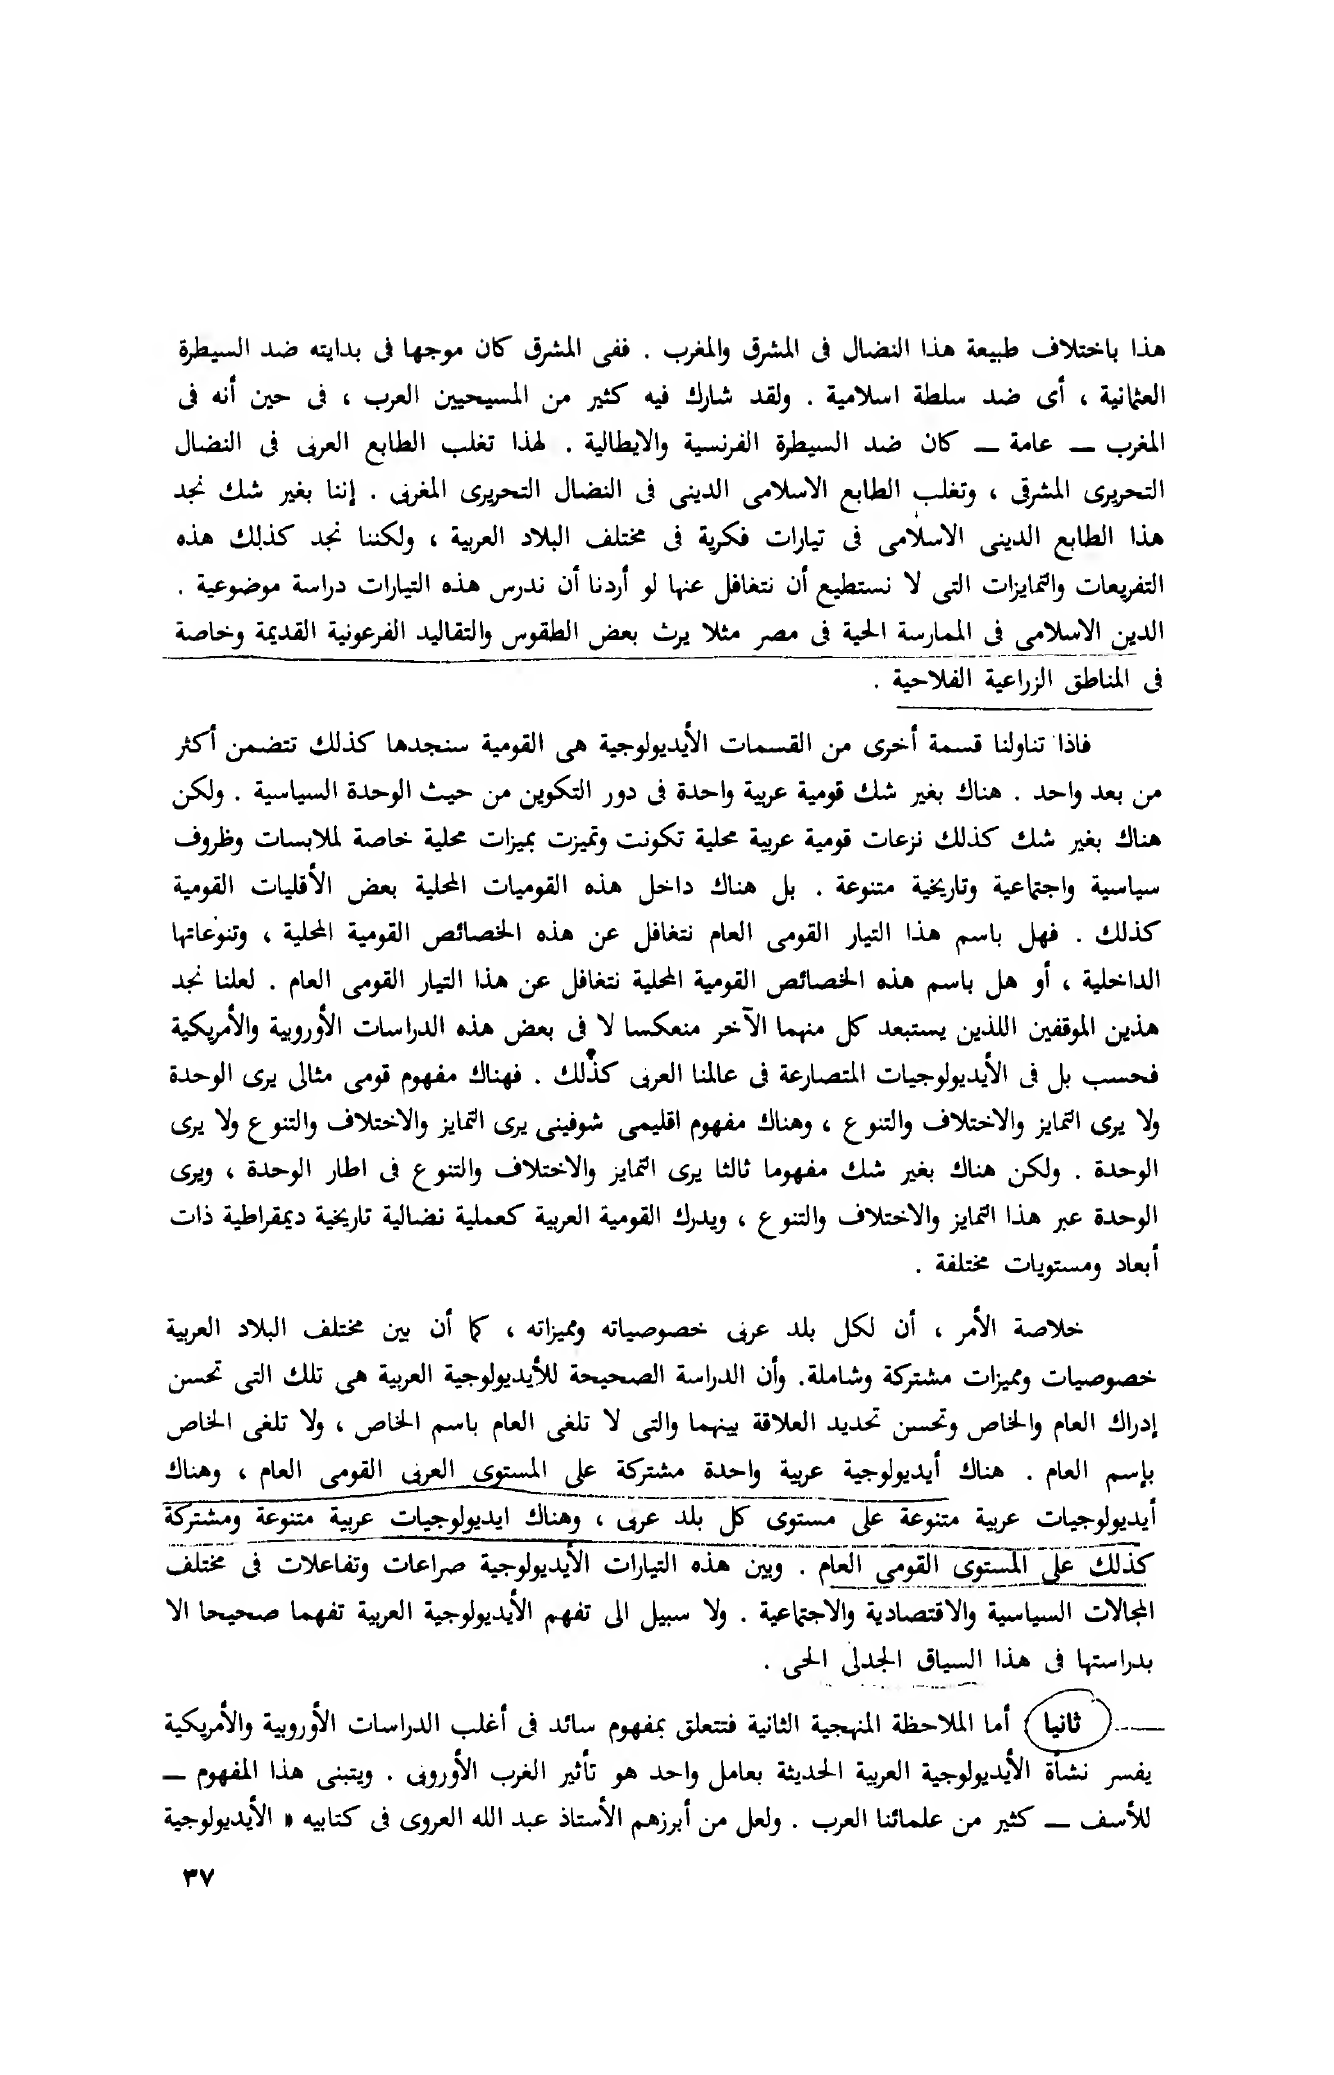 هذا باختلاف طبيعة هذا النضال فى المشرق والمغرب . ففى المشرق كان موجها فى بدايته ضد السيطرة
العثمانية ، أى ضد سلطة اسلامية . ولقد شارك فيه كثير من المسيحيين العرب ، فى حين أنه فى
المغرب ــ عامة ــ كان ضد السيطرة الفرنسية والايطالية . لهذا تغلب الطابع العربى فى النضال
التحريرى المشرقى ، وتغلب الطابع الاسلامى الدينى فى النضال التحريرى المغربى . إننا بغير شك نجد
هذا الطابع الدينى الاسلامى فى تيارات فكرية فى مختلف البلاد العربية ، ولكننا نجد كذلك هذه
التفريعات والتمايزات التى لا نستطيع أن نتغافل عنها لو أردنا أن ندرس هذه التيارات دراسة موضوعية .
الدين الاسلامى فى الممارسة الحية فى مصر مثلا يرث بعض الطقوس والتقاليد الفرعونية القديمة وخاصة
فى المناطق الزراعية الفلاحية .
فاذا تناولنا قسمة أخرى من القسمات الأيديولوجية هى القومية سنجدها كذلك تتضمن أكثر
من بعد واحد . هناك بغير شك قومية عربية واحدة فى دور التكوين من حيث الوحدة السياسية . ولكن
هناك بغير شك كذلك نزعات قومية عربية محلية تكونت وتميزت بميزات محلية خاصة لملابسات وظروف
سياسية واجتماعية وتاريخية متنوعة . بل هناك داخل هذه القوميات المحلية بعض الأقليات القومية
كذلك . فهل باسم هذا التيار القومى العام نتغافل عن هذه الخصائص القومية المحلية ، وتنوعاتها
الداخلية ، أو هل باسم هذه الخصائص القومية المحلية نتغافل عن هذا التيار القومى العام . لعلنا نجد
هذين الموقفين اللذين يستبعد كل منهما الآخر منعكسا لا فى بعض هذه الدراسات الأوروبية والأمريكية
فحسب بل فى الأيديولوجيات المتصارعة فى عالمنا العربى كذلك . فهناك مفهوم قومى مثالى يرى الوحدة
ولا يرى التمايز والاختلاف والتنوع ، وهناك مفهوم اقليمى شوفينى يرى التمايز والاختلاف والتنوع ولا يرى
الوحدة . ولكن هناك بغير شك مفهوما ثالثا يرى التمايز والاختلاف والتنوع فى اطار الوحدة ، ويرى
الوحدة عبر هذا التمايز والاختلاف والتنوع ، ويدرك القومية العربية كعملية نضالية تاريخية ديمقراطية ذات
أبعاد ومستويات مختلفة .
خلاصة الأمر ، أن لكل بلد عربى خصوصياته ومميزاته ، كما أن بين مختلف البلاد العربية
خصوصيات ومميزات مشتركة وشاملة. وأن الدراسة الصحيحة للأيديولوجية العربية هى تلك التى تحسن
إدراك العام والخاص وتحسن تحديد العلاقة بينهما والتى لا تلغى العام باسم الخاص ، ولا تلغى الخاص
بإسم العام . هناك أيديولوجية عربية واحدة مشتركة على المستوى العربى القومى العام ، وهناك
أيديولوجيات عربية متنوعة على مستوى كل بلد عربى ، وهناك ايديولوجيات عربية متنوعة ومشتركة
كذلك على المستوى القومى العام . وبين هذه التيارات الأيديولوجية صراعات وتفاعلات فى مختلف
المجالات السياسية والاقتصادية والاجتماعية . ولا سبيل الى تفهم الأيديولوجية العربية تفهما صحيحا الا
بدراستها فى هذا السياق الجدلى الحى .
ثانيا أما الملاحظة المنهجية الثانية فتتعلق بمفهوم سائد فى أغلب الدراسات الأوروبية والأمريكية
يفسر نشأة الأيديولوجية العربية الحديثة بعامل واحد هو تأثير الغرب الأوروبى . ويتبنى هذا المفهوم ــ
للأسف ــ كثير من علمائنا العرب . ولعل من أبرزهم الأستاذ عبد الله العروى فى كتابيه « الأيديولوجية
٣٧